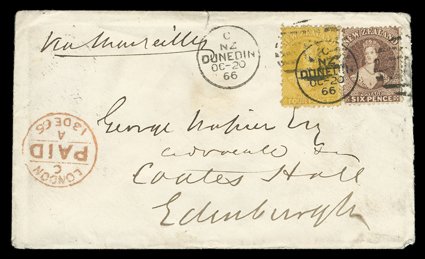 Via Marseilles
C
NZ
DUNEDIN
OC-20
66
C
NZ
DUNEDIN
OC-20
66
NEW ZEALAND
SIX PENCE
George Napier Esq
advocate
Coates Hall
Edinburgh
LONDON
C
PAID
A
13 DE 66